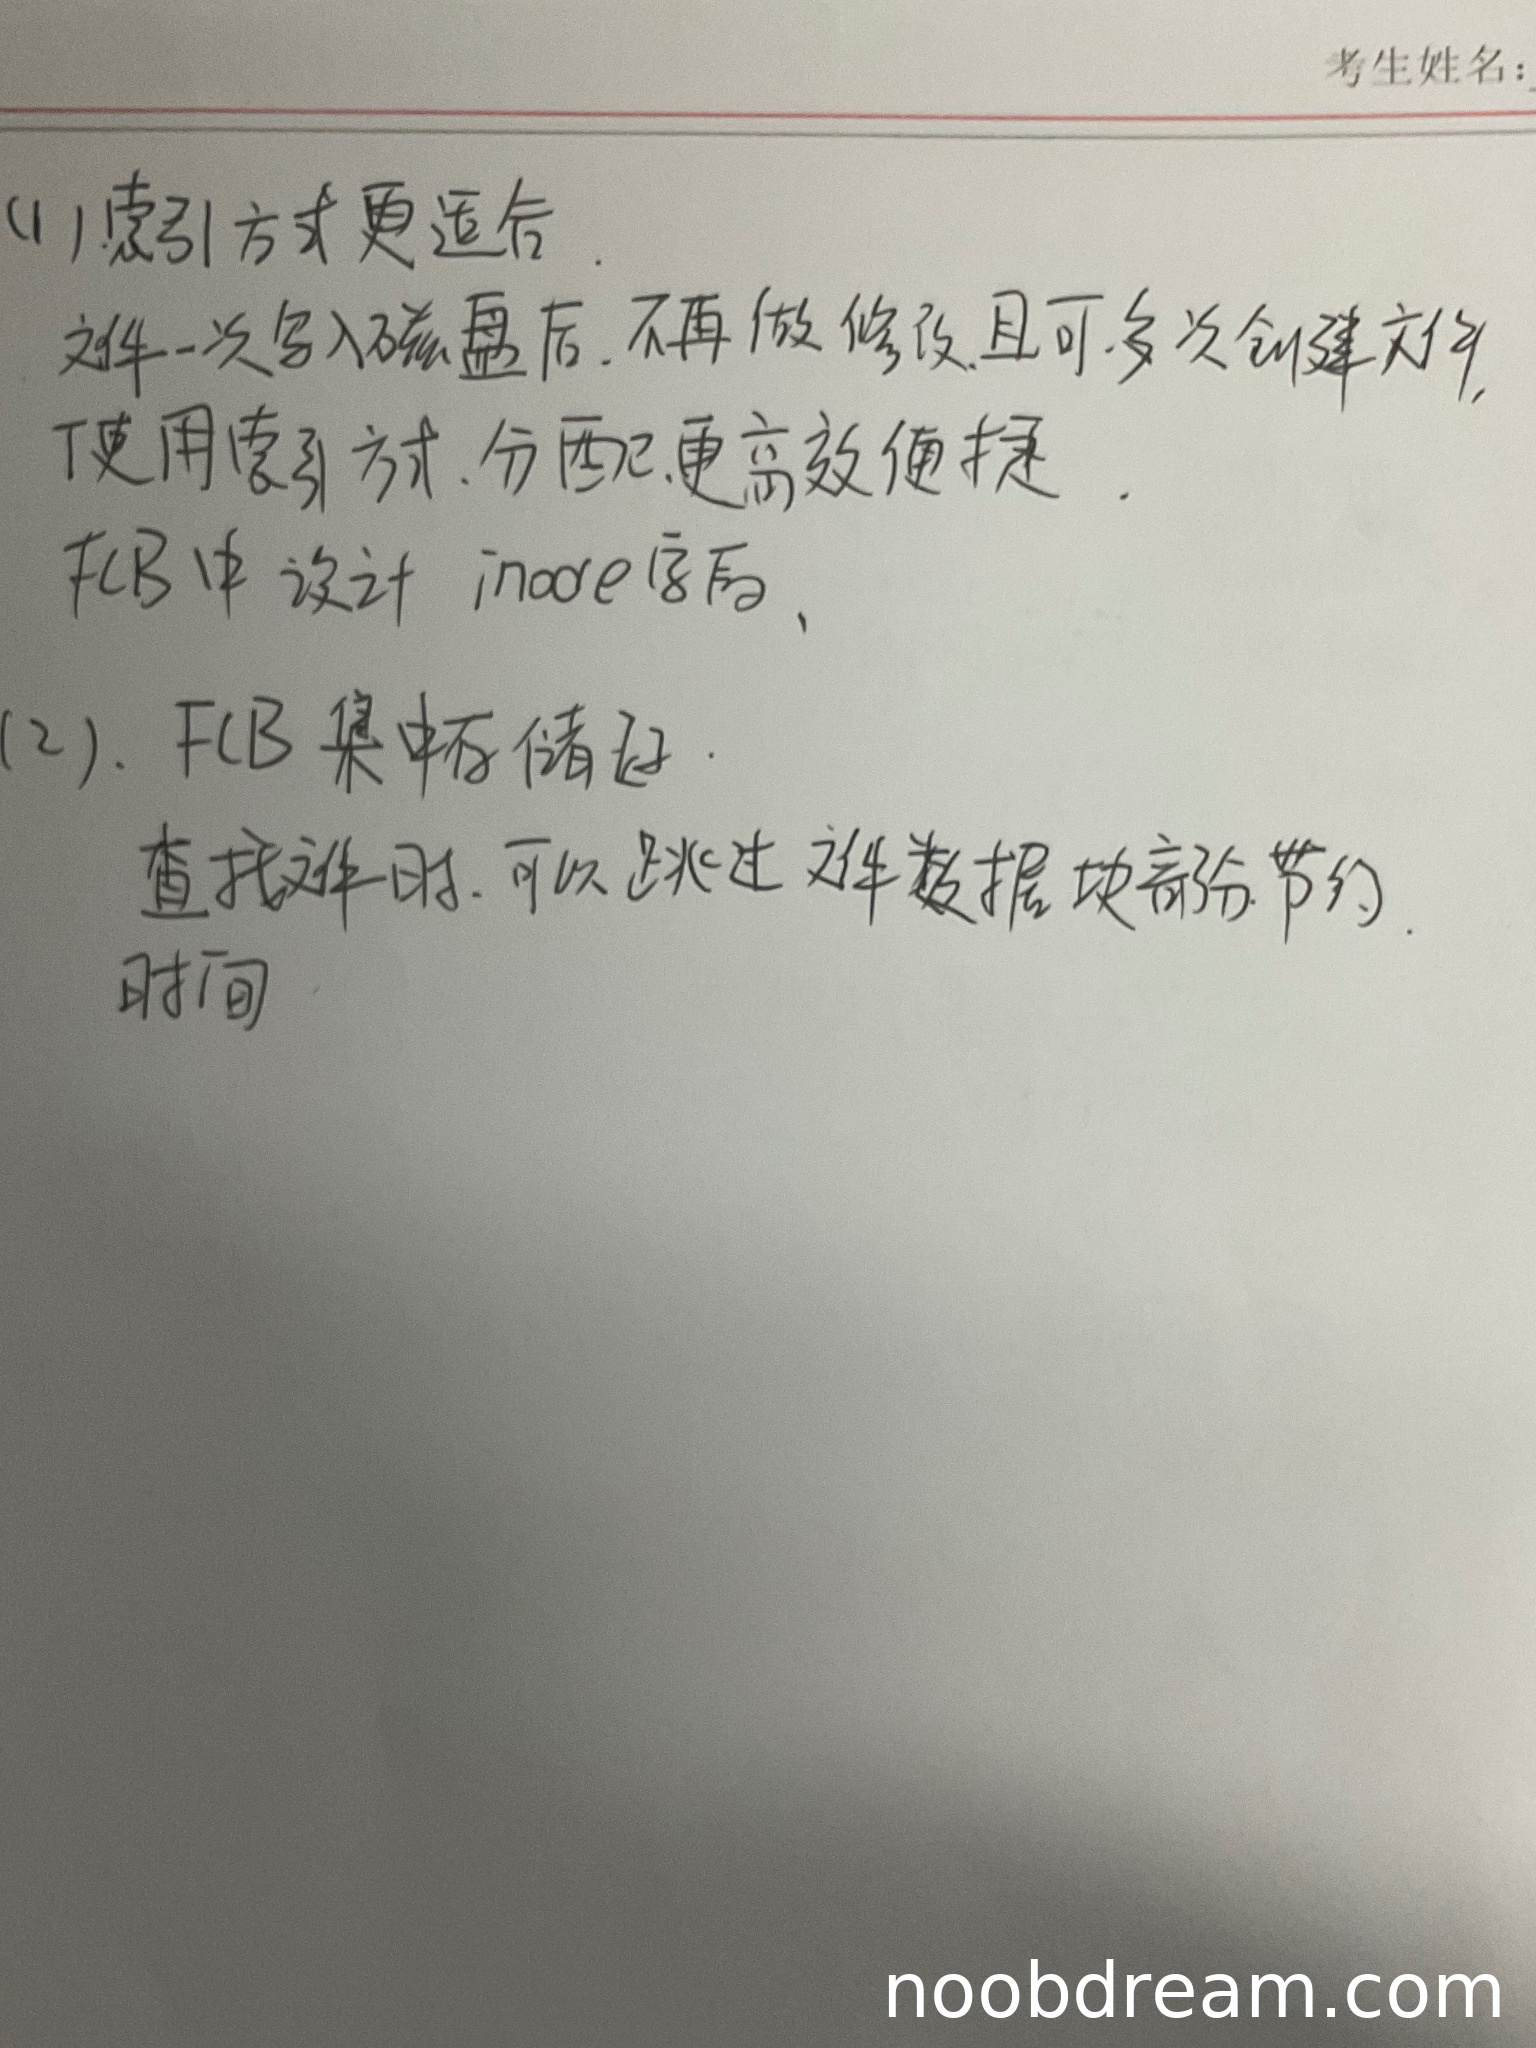 考生姓名:
(1)索引方式更适合.
文件一次写入磁盘后.不再做修改.且可多次创建文件,
使用索引方式.分配更高效便捷.
FCB中设计 inode字段、
(2). FCB 集中存储好.
查找文件时.可以跳过文件数据块部份.节约.
时间.
noobdream.com